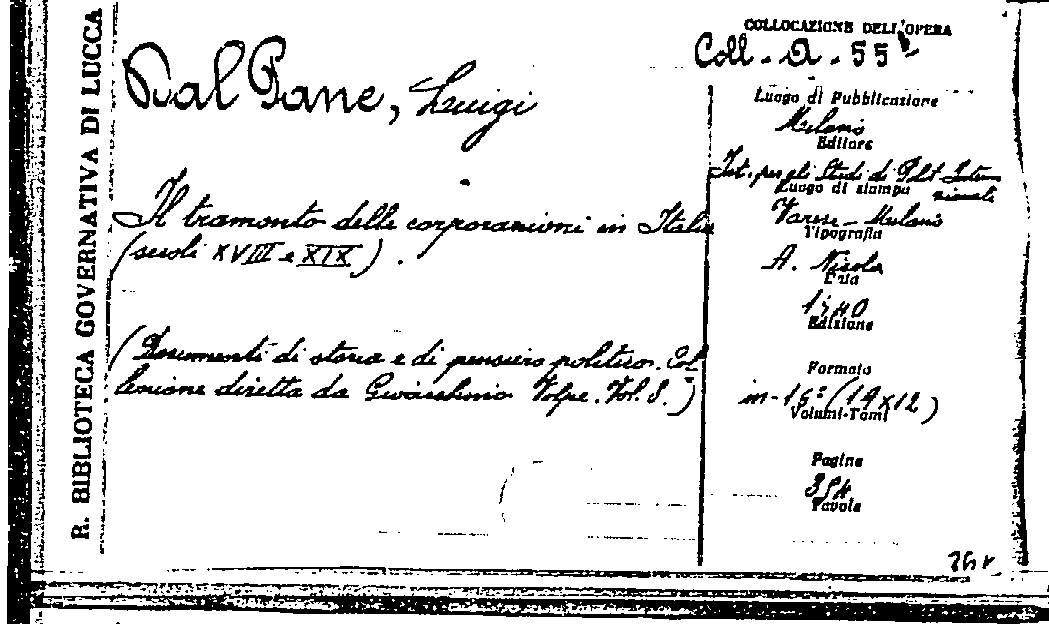 R. BIBLIOTECA GOVERNATIVA DI LUCCA
Dal Pane, Luigi
Il tramonto delle corporazioni in Italia
(secoli XVIII e XIX).
(Documenti di storia e di pensiero politico. Col
lezione diretta da Gioacchino Volpe. Vol. 8.)
COLLOCAZIONE DELL'OPERA
Coll. A. 55
Luogo di Pubblicazione
Milano
Editore
Ist. per gli Studi di Polit. Interna
zionale
Luogo di stampa
Varese - Milano
Tipografia
A. Nicola
Data
1940
Edizione
Formato
in-16° (19x12)
Volumi-Tomi
Pagine
394
Tavole